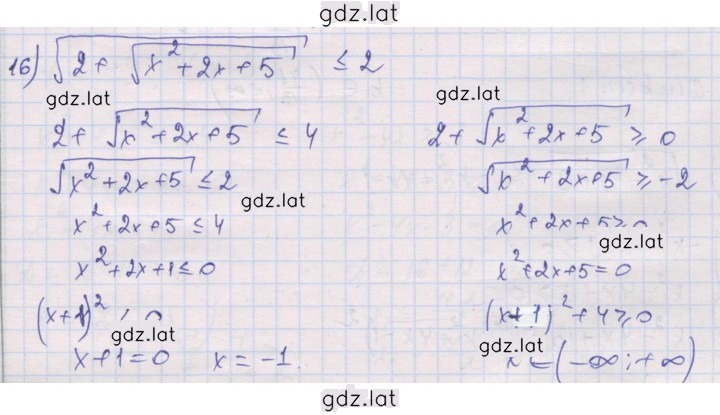 gdz.lat
16) √(2 + √(x² + 2x + 5)) ≤ 2
gdz.lat
2 + √(x² + 2x + 5) ≤ 4
√(x² + 2x + 5) ≤ 2
gdz.lat
x² + 2x + 5 ≤ 4
x² + 2x + 1 ≤ 0
(x + 1)²
gdz.lat
x + 1 = 0 x = -1
gdz.lat
2 + √(x² + 2x + 5) ≥ 0
√(x² + 2x + 5) ≥ -2
x² + 2x + 5 ≥
gdz.lat
x² + 2x + 5 = 0
(x + 1)² + 4 ≥ 0
gdz.lat
(-∞; +∞)
gdz.lat